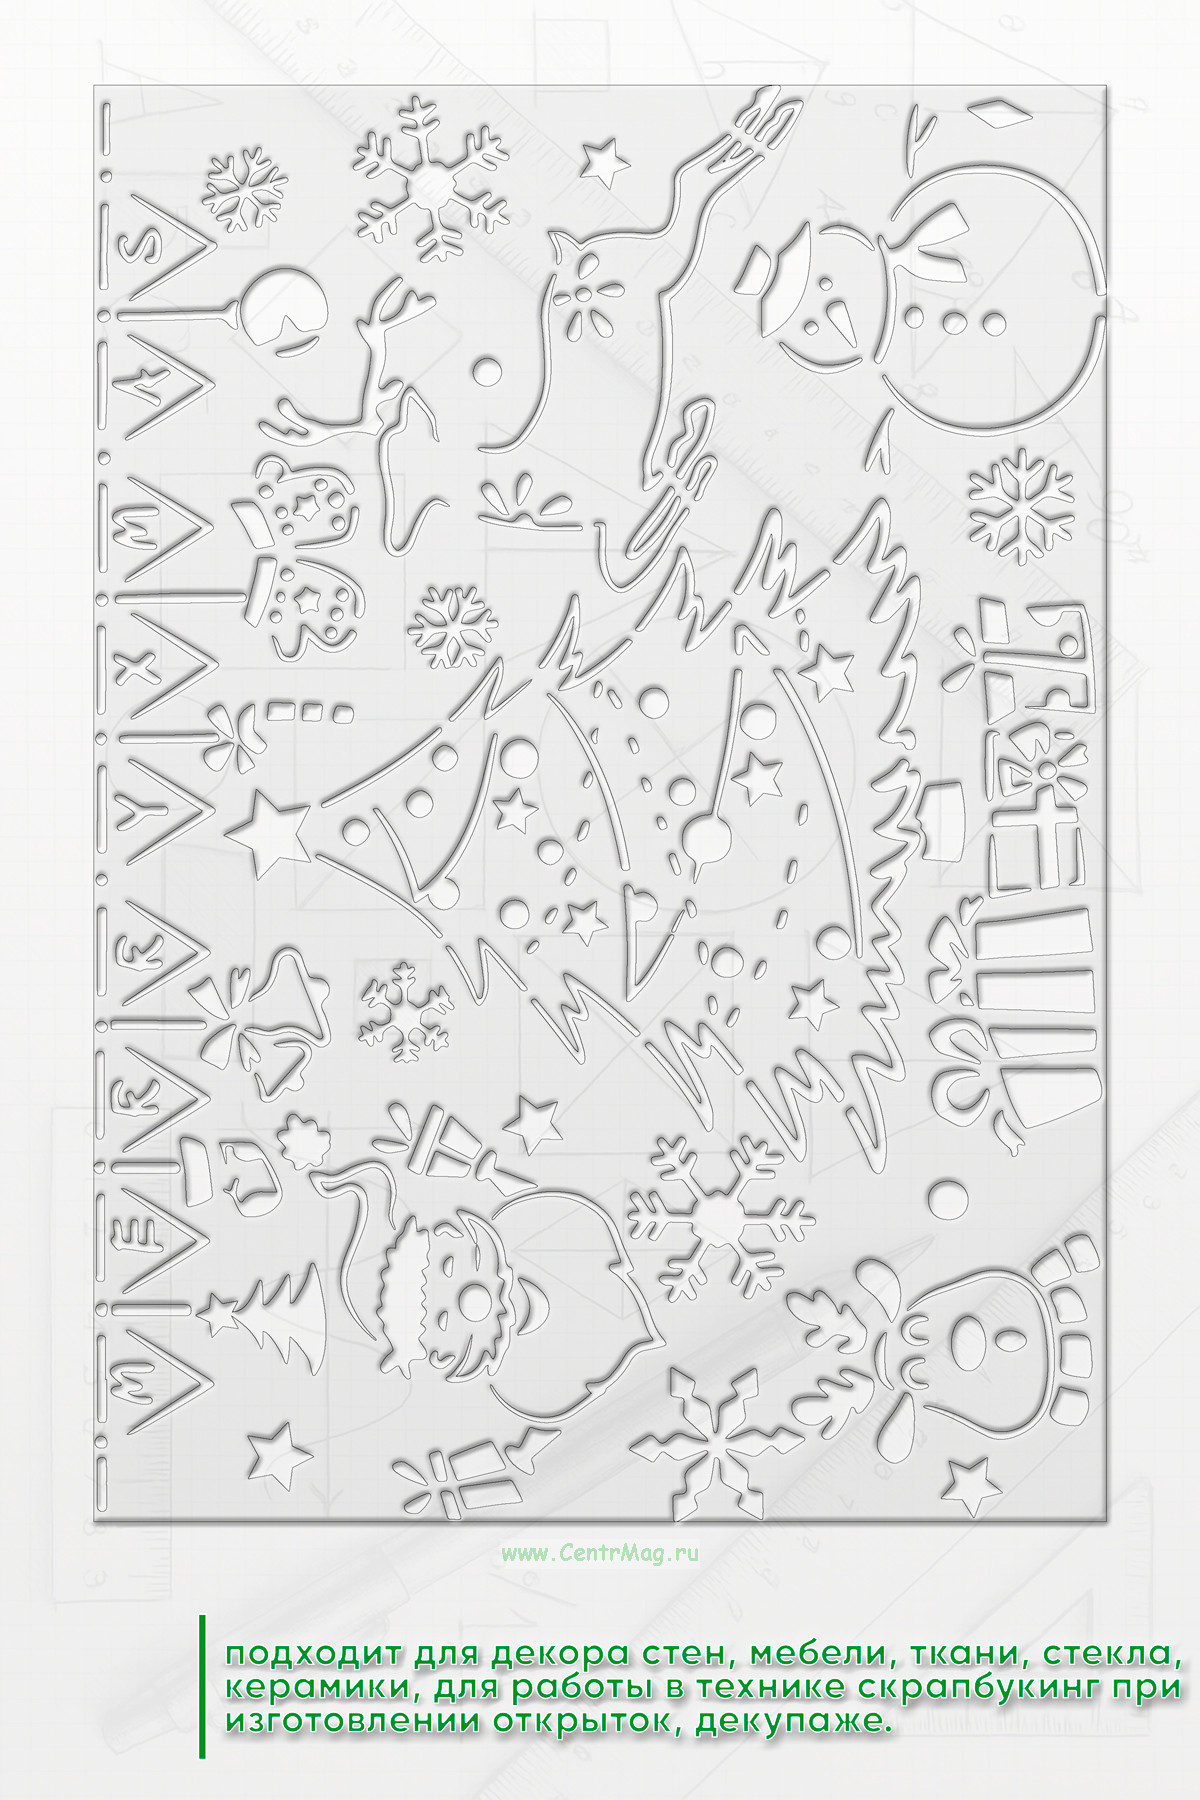 MERRY XMAS
www.CentrMag.ru
подходит для декора стен, мебели, ткани, стекла,
керамики, для работы в технике скрапбукинг при
изготовлении открыток, декупаже.